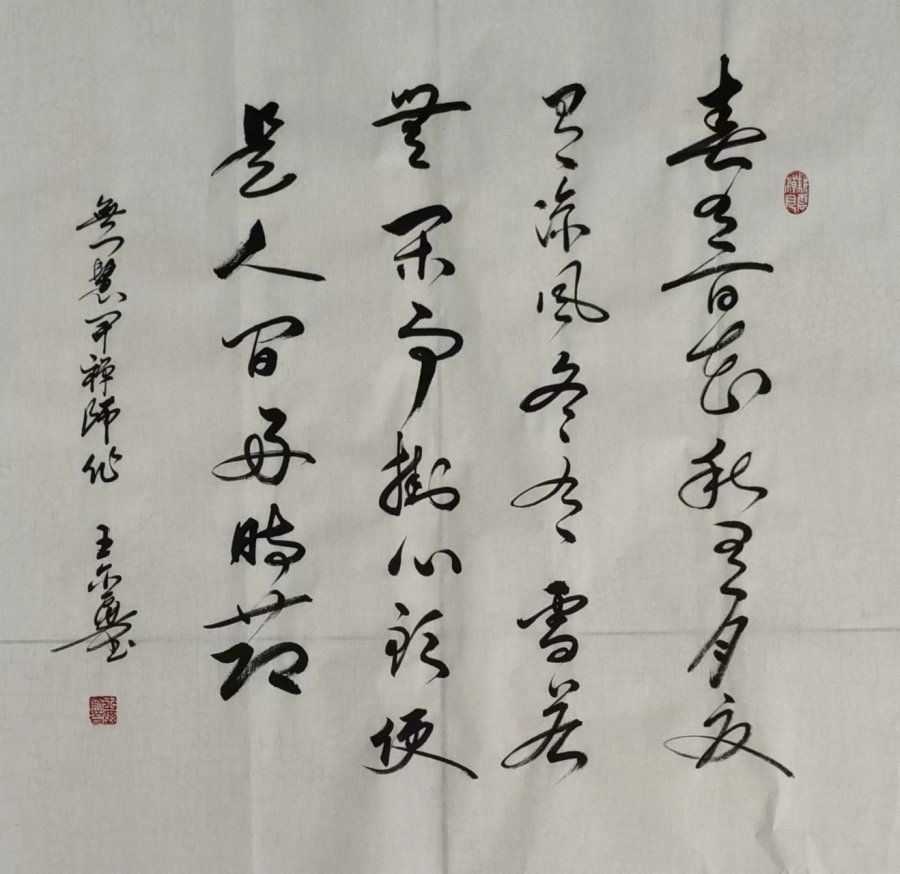 春有百花秋有月夏
有凉风冬有雪若
無闲事掛心头便
是人间好時节
無门慧开禅师作 王